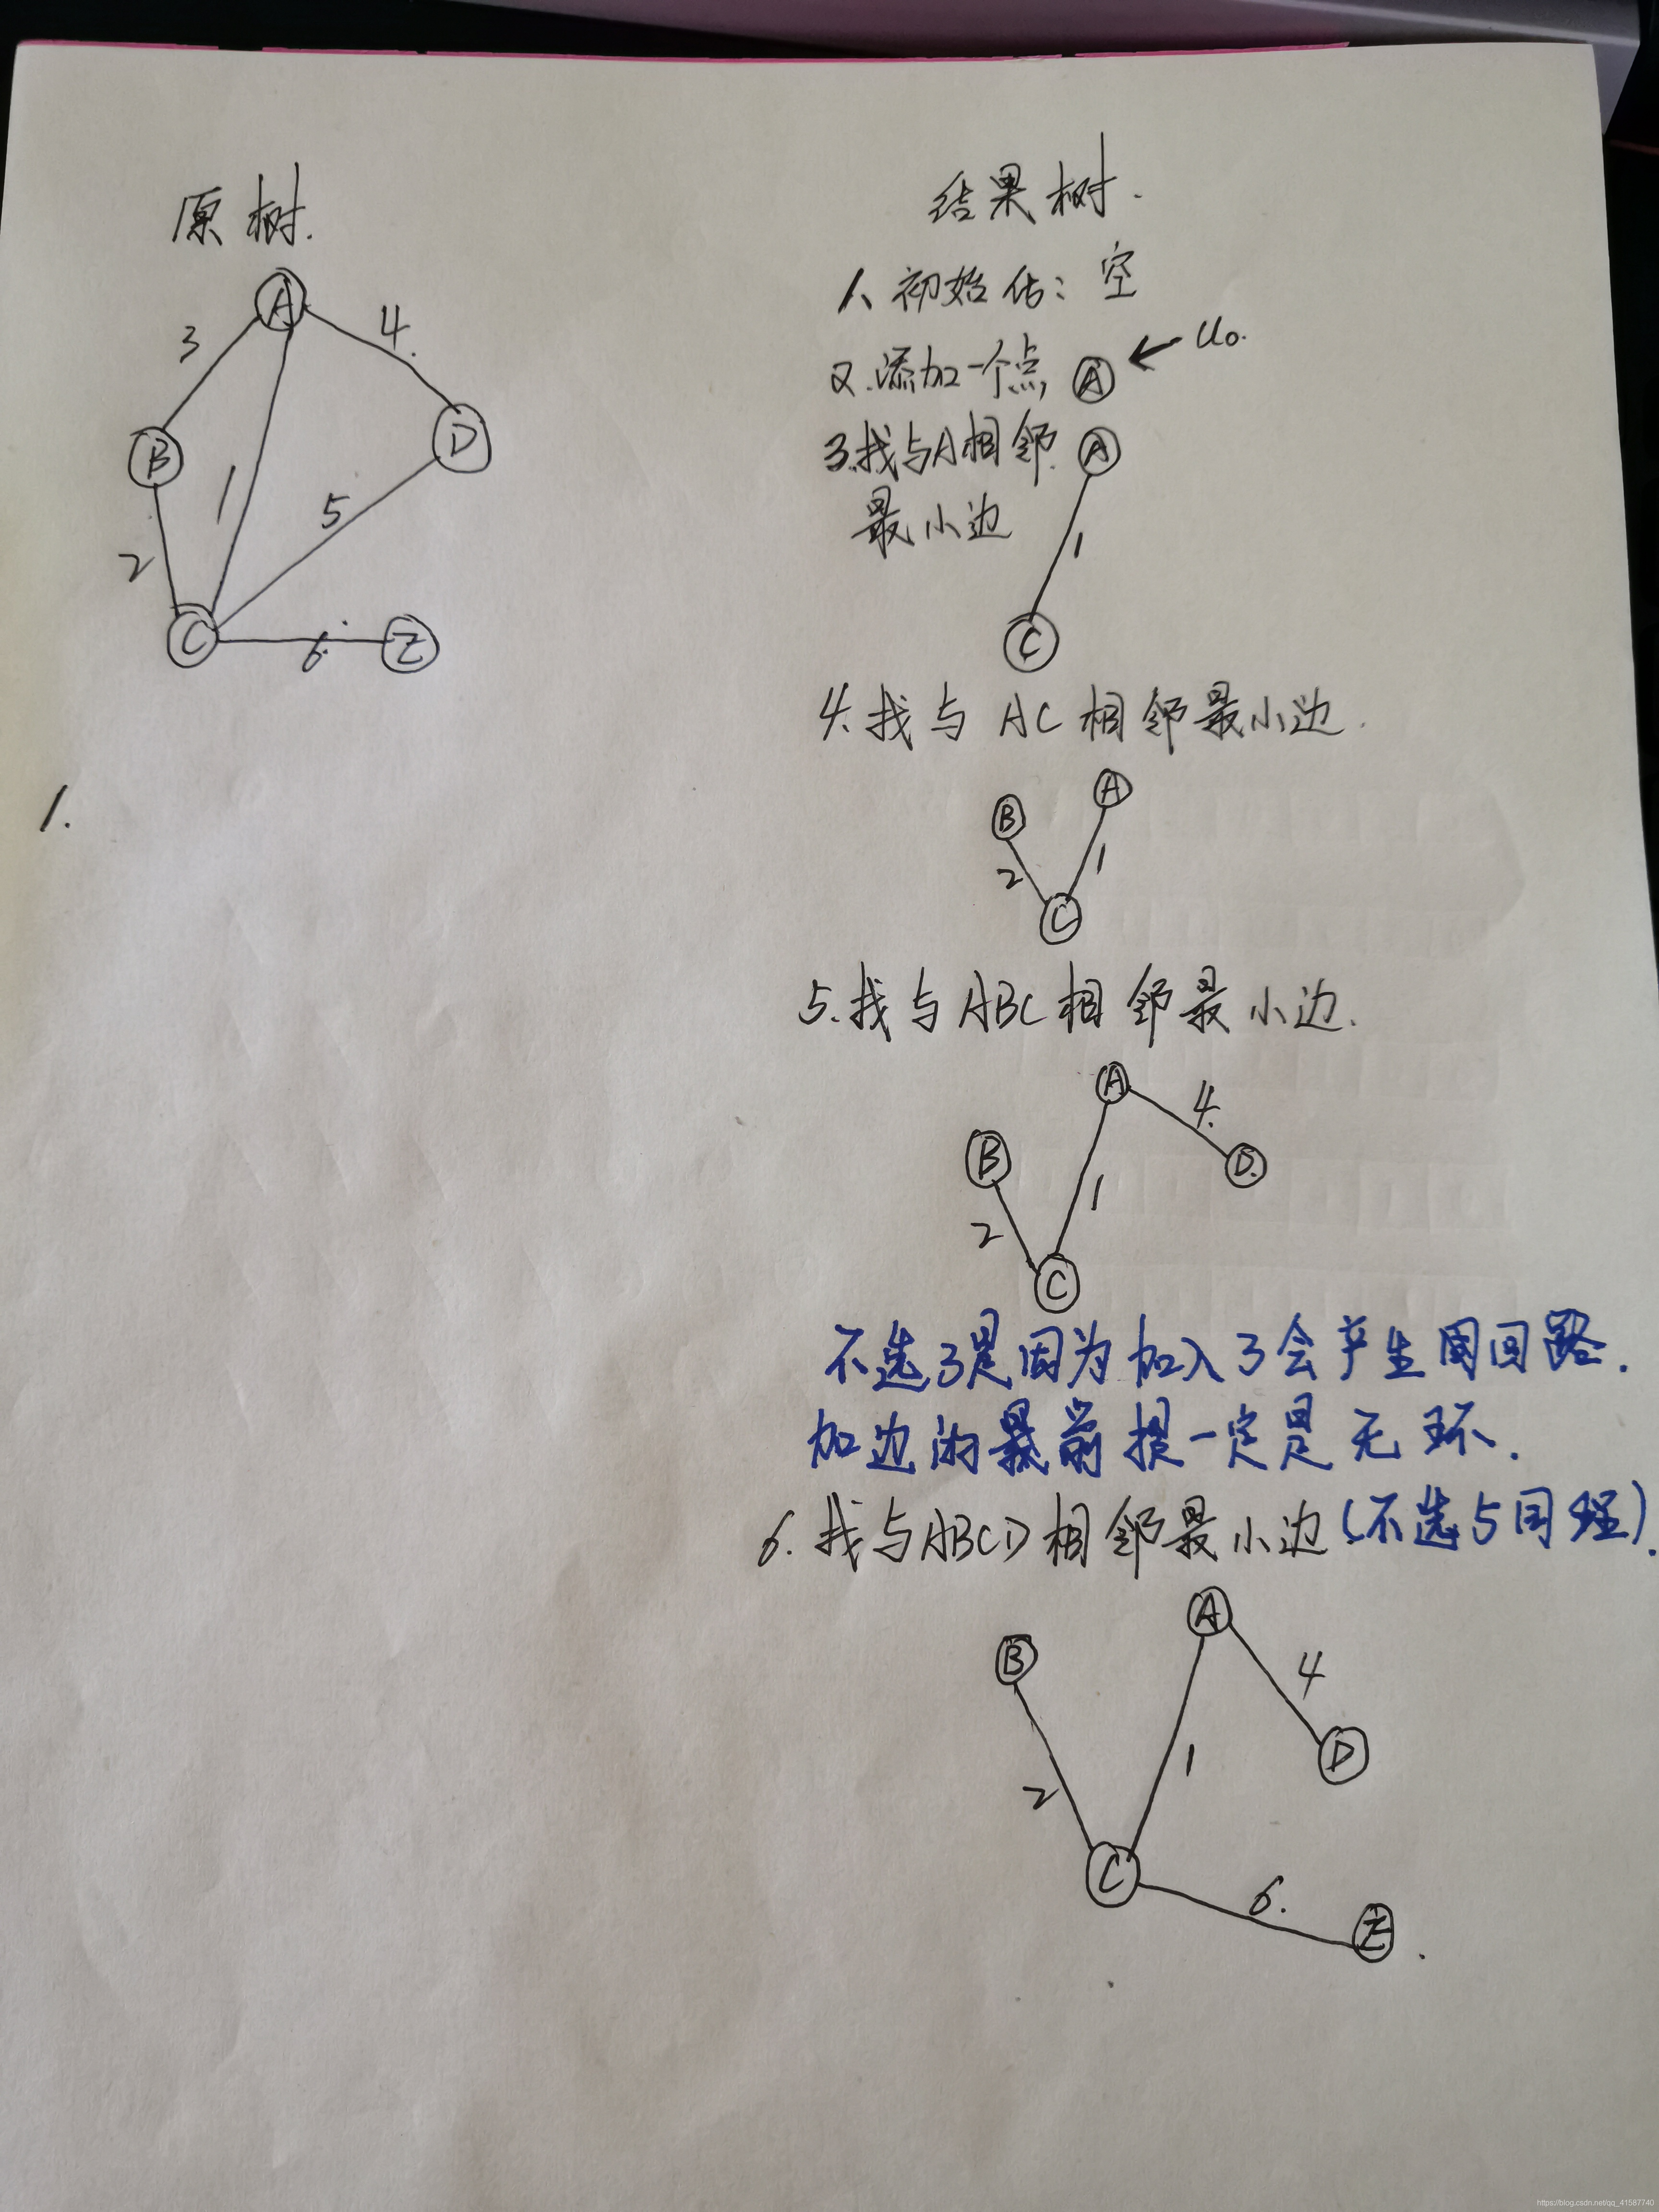 原树.
A
3
4.
B
D
1
5
2
C
6.
E
1.
结果树.
1、初始化：空
2.添加一个点, A ← u0.
3.找与A相邻. A
最小边
1
C
4.找与 AC 相邻最小边.
B
A
2
1
C
5.找与ABC相邻最小边.
A
4.
B
D.
1
2
C
不选3是因为加入3会产生回路.
加边的前提一定是无环.
6.找与ABCD相邻最小边(不选5同理).
A
B
4
D
1
2
C
6.
E.
https://blog.csdn.net/qq_41587740